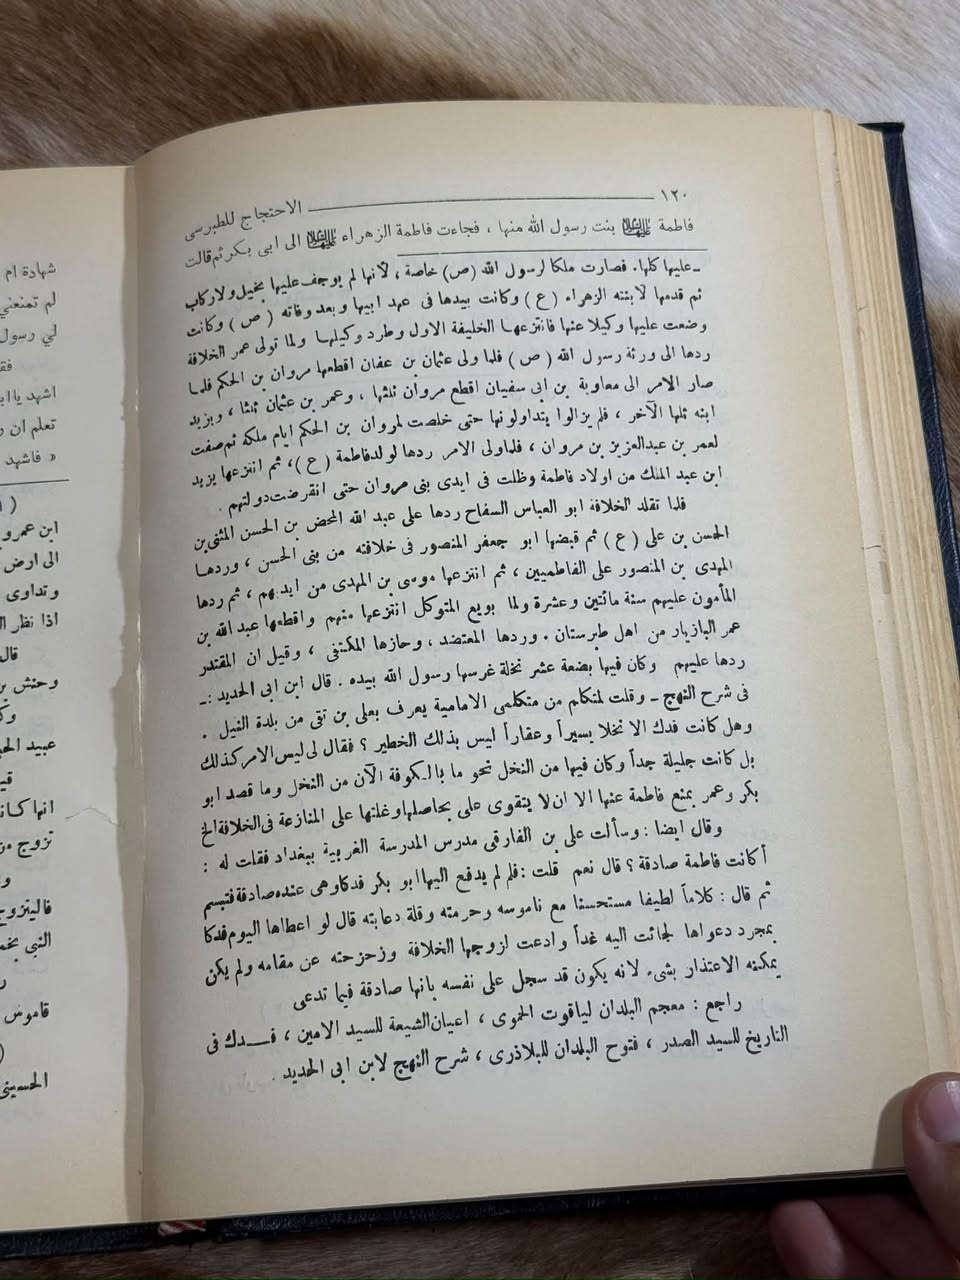 ١٢٠
الاحتجاج للطبرسى
فاطمة عليها السلام بنت رسول الله منها ، فجاءت فاطمة الزهراء عليها السلام الى ابى بكر ثم قالت
ـ عليها كلها. فصارت ملكا لرسول الله (ص) خاصة ، لأنها لم يوجف عليها بخيل ولا ركاب
ثم قدمها لابنته الزهراء (ع) وكانت بيدها فى عهد ابيها وبعد وفاته (ص) وكانت
وضعت عليها وكيلا عنها فانتزعها الخليفة الاول وطرد وكيلها ولما تولى عمر الخلافة
ردها الى ورثة رسول الله (ص) فلما ولى عثمان بن عفان اقطعها مروان بن الحكم فلما
صار الامر الى معاوية بن ابى سفيان اقطع مروان ثلثها ، وعمر بن عثمان ثلثا ، ويزيد
ابنه ثلثها الآخر ، فلم يزالوا يتداولونها حتى خلصت لمروان بن الحكم ايام ملكه ثم صفت
لعمر بن عبدالعزيز بن مروان ، فلما ولى الامر ردها لولد فاطمة (ع) ، ثم انتزعها يزيد
ابن عبد الملك من اولاد فاطمة وظلت فى ايدى بنى مروان حتى انقرضت دولتهم .
فلما تقلد الخلافة ابو العباس السفاح ردها على عبد الله المحض بن الحسن المثنى بن
الحسن بن على (ع) ثم قبضها ابو جعفر المنصور فى خلافته من بنى الحسن ، وردها
المهدى بن المنصور على الفاطميين ، ثم انتزعها موسى بن المهدى من ايديهم ، ثم ردها
المأمون عليهم سنة مائتين وعشرة ولما بويع المتوكل انتزعها منهم واقطعها عبد الله بن
عمر البازيار من اهل طبرستان . وردها المعتضد ، وحازها المكتفى ، وقيل ان المقتدر
ردها عليهم وكان فيها بضعة عشر نخلة غرسها رسول الله بيده . قال ابن ابى الحديد :ـ
فى شرح النهج ـ وقلت لمتكلم من متكلمى الامامية يعرف بعلى بن تقى من بلدة النيل .
وهل كانت فدك الا نخلا يسيراً وعقاراً ليس بذلك الخطير ؟ فقال لى ليس الامر كذلك
بل كانت جليلة جداً وكان فيها من النخل نحو ما بالكوفة الآن من النخل وما قصد ابو
بكر وعمر بمنع فاطمة عنها الا ان لا يتقوى على بحاصلها وغلتها على المنازعة فى الخلافة الخ
وقال ايضا : وسألت على بن الفارقى مدرس المدرسة الغربية ببغداد فقلت له :
أكانت فاطمة صادقة ؟ قال نعم قلت : فلم لم يدفع اليها ابو بكر فدكا وهى عنده صادقة فتبسم
ثم قال : كلاماً لطيفا مستحسنا مع ناموسه وحرمته وقلة دعابته قال لو اعطاها اليوم فدكا
بمجرد دعواها لجائت اليه غداً وادعت لزوجها الخلافة وزحزحته عن مقامه ولم يكن
يمكنه الاعتذار بشىء لانه يكون قد سجل على نفسه بانها صادقة فيما تدعى
راجع : معجم البلدان لياقوت الحموى ، اعيان الشيعة للسيد الامين ، فــدك فى
التاريخ للسيد الصدر ، فتوح البلدان للبلاذرى ، شرح النهج لابن ابى الحديد .
شهادة ام
لم تمنعني
لي رسول
اشهد يا
تعلم ان
« فاشهد
ابن عمرو
الى ارض
وتداوى
اذا نظر
قال
وحنش
انها كانت
تزوج من
فاليتزوج
قاموس
الحسينى